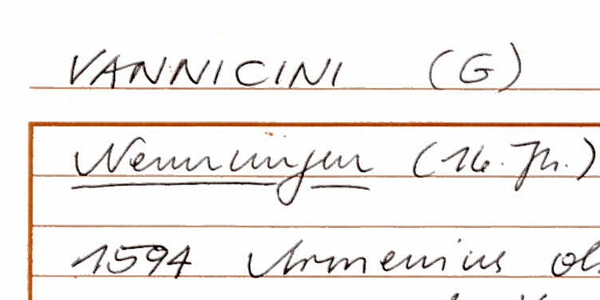 VANNICINI (G)
Nennungen (16. Jh.)
1594 Armenius